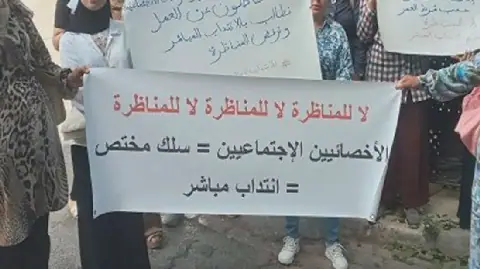 عن العمل
نطالب بالانتداب المباشر
المناظرة
لا للمناظرة لا للمناظرة لا للمناظرة
الأخصائيين الإجتماعيين = سلك مختص
= انتداب مباشر